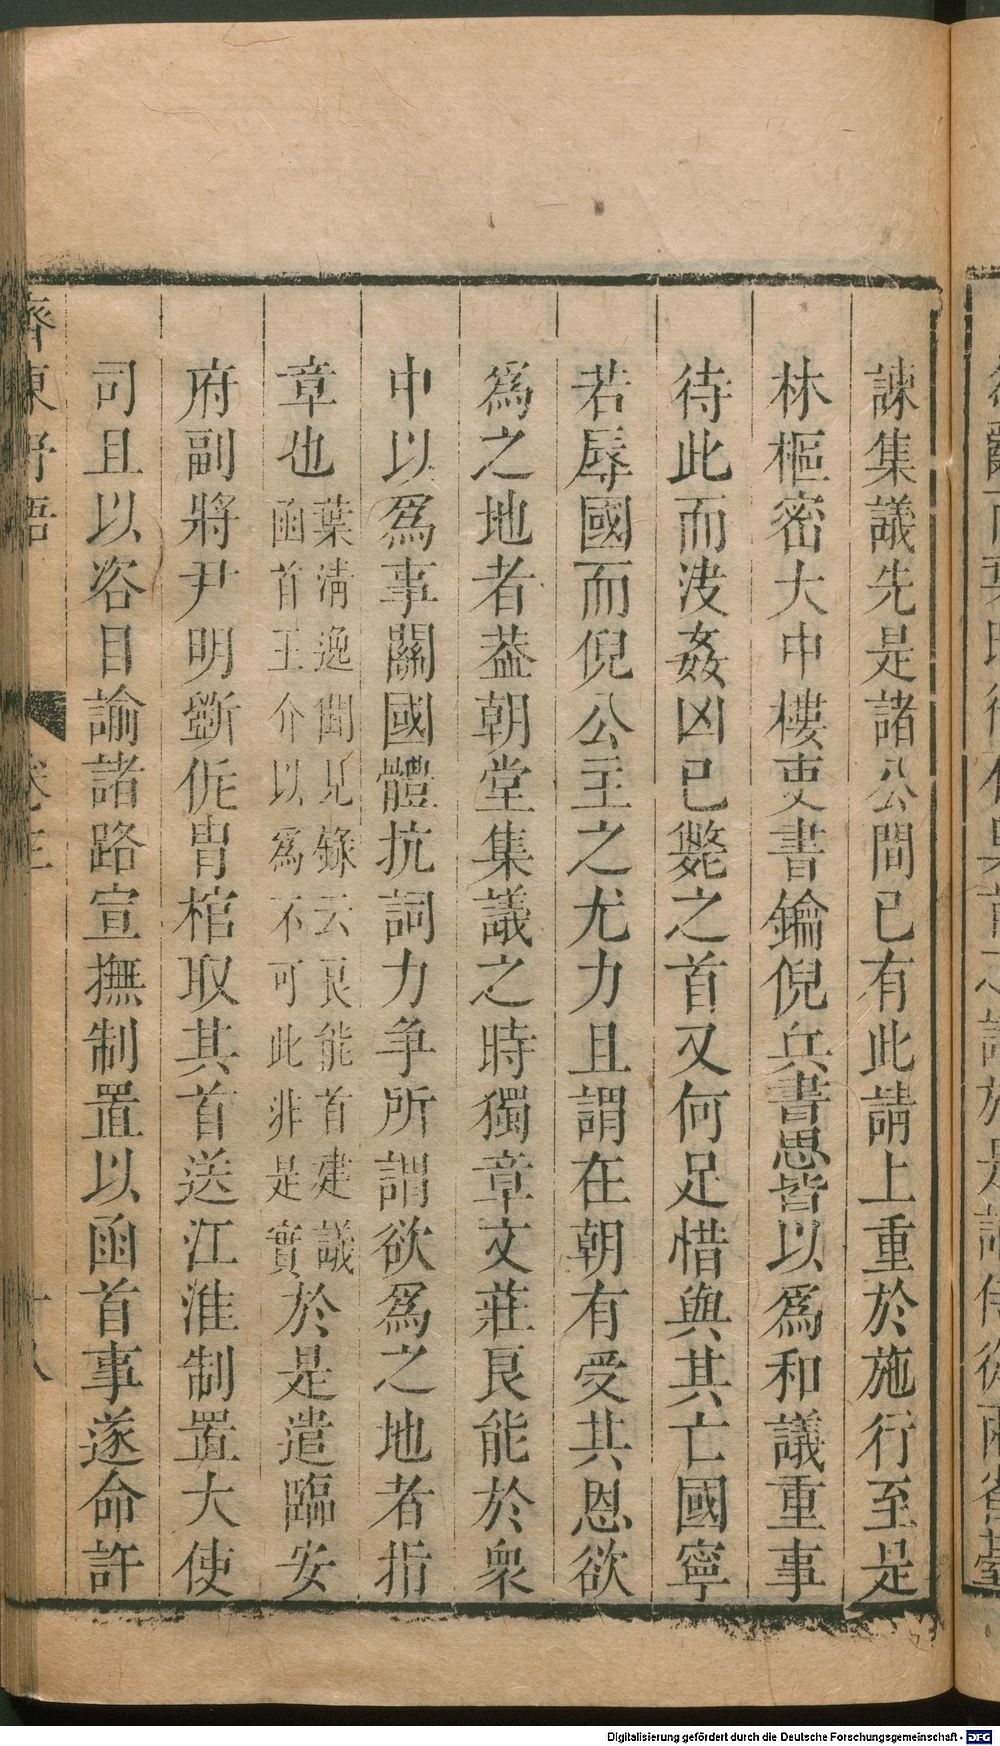 諫集議先是諸公間已有此請上重於施行至是
林樞密大中樓吏書鑰倪兵書思皆以爲和議重事
待此而决姦凶已斃之首又何足惜與其亡國寧
若辱國而倪公主之尤力且謂在朝有受其恩欲
爲之地者葢朝堂集議之時獨章文莊良能於衆
中以爲事關國體抗詞力争所謂欲爲之地者指
章也
葉淸逸聞見錄云良能首建議
函首王介以爲不可此非是實
於是遣臨安
府副將尹明斵侂冑棺取其首送江淮制置大使
司且以咨目諭諸路宣撫制置以函首事遂命許
齊東野語
卷三
十八
Digitalisierung gefördert durch die Deutsche Forschungsgemeinschaft - DFG